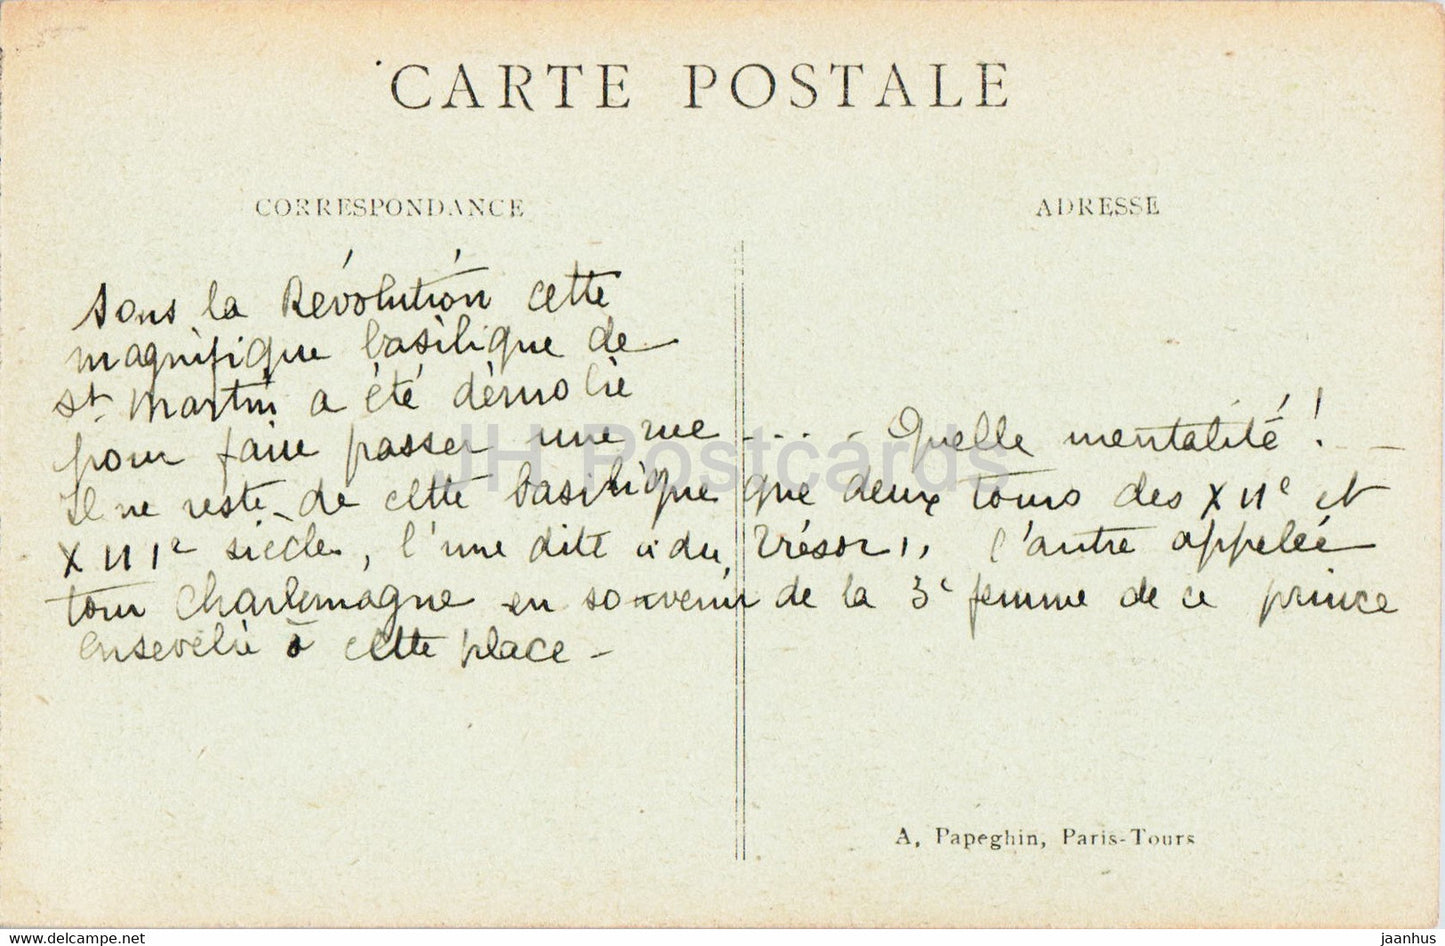 CARTE POSTALE
CORRESPONDANCE
ADRESSE
Sous la Révolution cette
magnifique basilique de
St Martin a été démolie
pour faire passer une rue - . . . - Quelle mentalité ! -
Il ne reste de cette basilique que deux tours des XIIe et
XIIIe siècles, l'une dite "du Trésor", l'autre appelée
tour Charlemagne en souvenir de la 3e femme de ce prince
ensevelie à cette place -
JH Postcards
A. Papeghin, Paris-Tours
https://www.ebay.com/usr/jaanhus-net
jaanhus